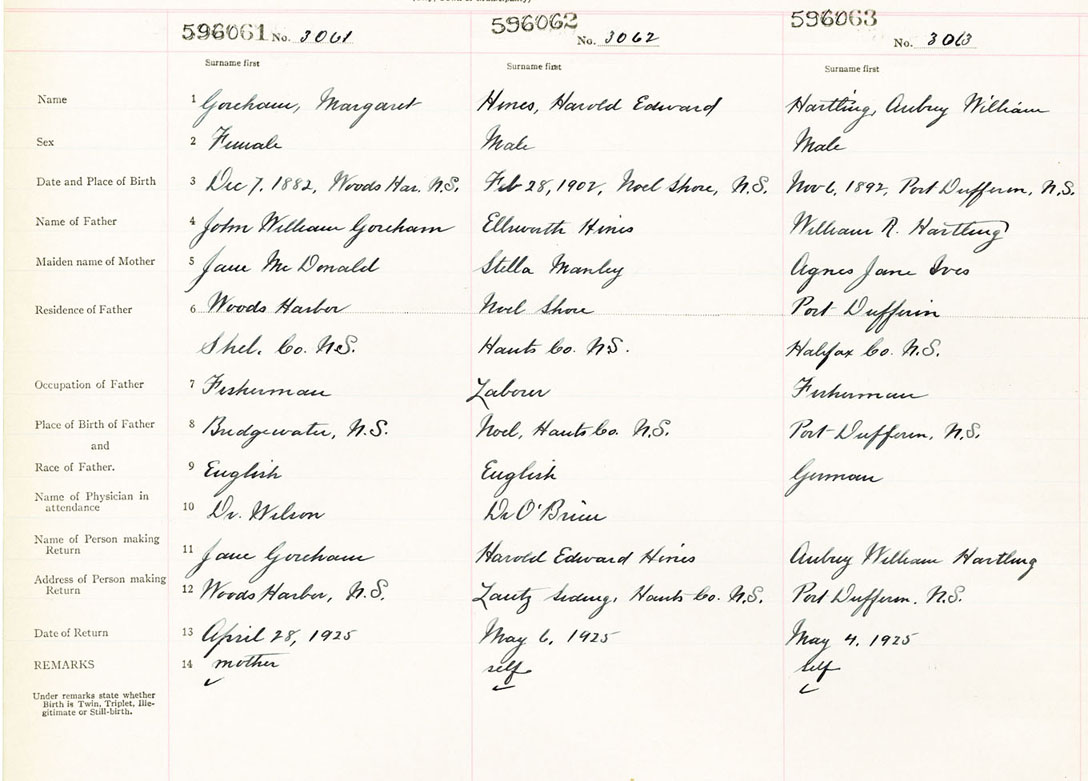 596061 No. 3061
596062 No. 3062
596063 No. 3063
Surname first
Surname first
Surname first
Name 1 Goreham, Margaret
Hines, Harold Edward
Hartling, Aubrey William
Sex 2 Female
Male
Male
Date and Place of Birth 3 Dec 7, 1882, Woods Har. N.S.
Feb 28, 1902, Noel Shore, N.S.
Nov 6, 1892, Port Dufferin, N.S.
Name of Father 4 John William Goreham
Ellsworth Hines
William R. Hartling
Maiden name of Mother 5 Jane McDonald
Stella Manley
Agnes Jane Ives
Residence of Father 6 Woods Harbor
Noel Shore
Port Dufferin
Shel. Co. N.S.
Hants Co. N.S.
Halifax Co. N.S.
Occupation of Father 7 Fisherman
Laborer
Fisherman
Place of Birth of Father 8 Bridgewater, N.S.
Noel, Hants Co. N.S.
Port Dufferin, N.S.
and
Race of Father. 9 English
English
German
Name of Physician in
attendance 10 Dr. Wilson
Dr O'Brien
Name of Person making
Return 11 Jane Goreham
Harold Edward Hines
Aubrey William Hartling
Address of Person making
Return 12 Woods Harbor, N.S.
Lantz Siding, Hants Co. N.S.
Port Dufferin. N.S.
Date of Return 13 April 28, 1925
May 6, 1925
May 4, 1925
REMARKS 14 mother
self
self
Under remarks state whether
Birth is Twin, Triplet, Ille-
gitimate or Still-birth.